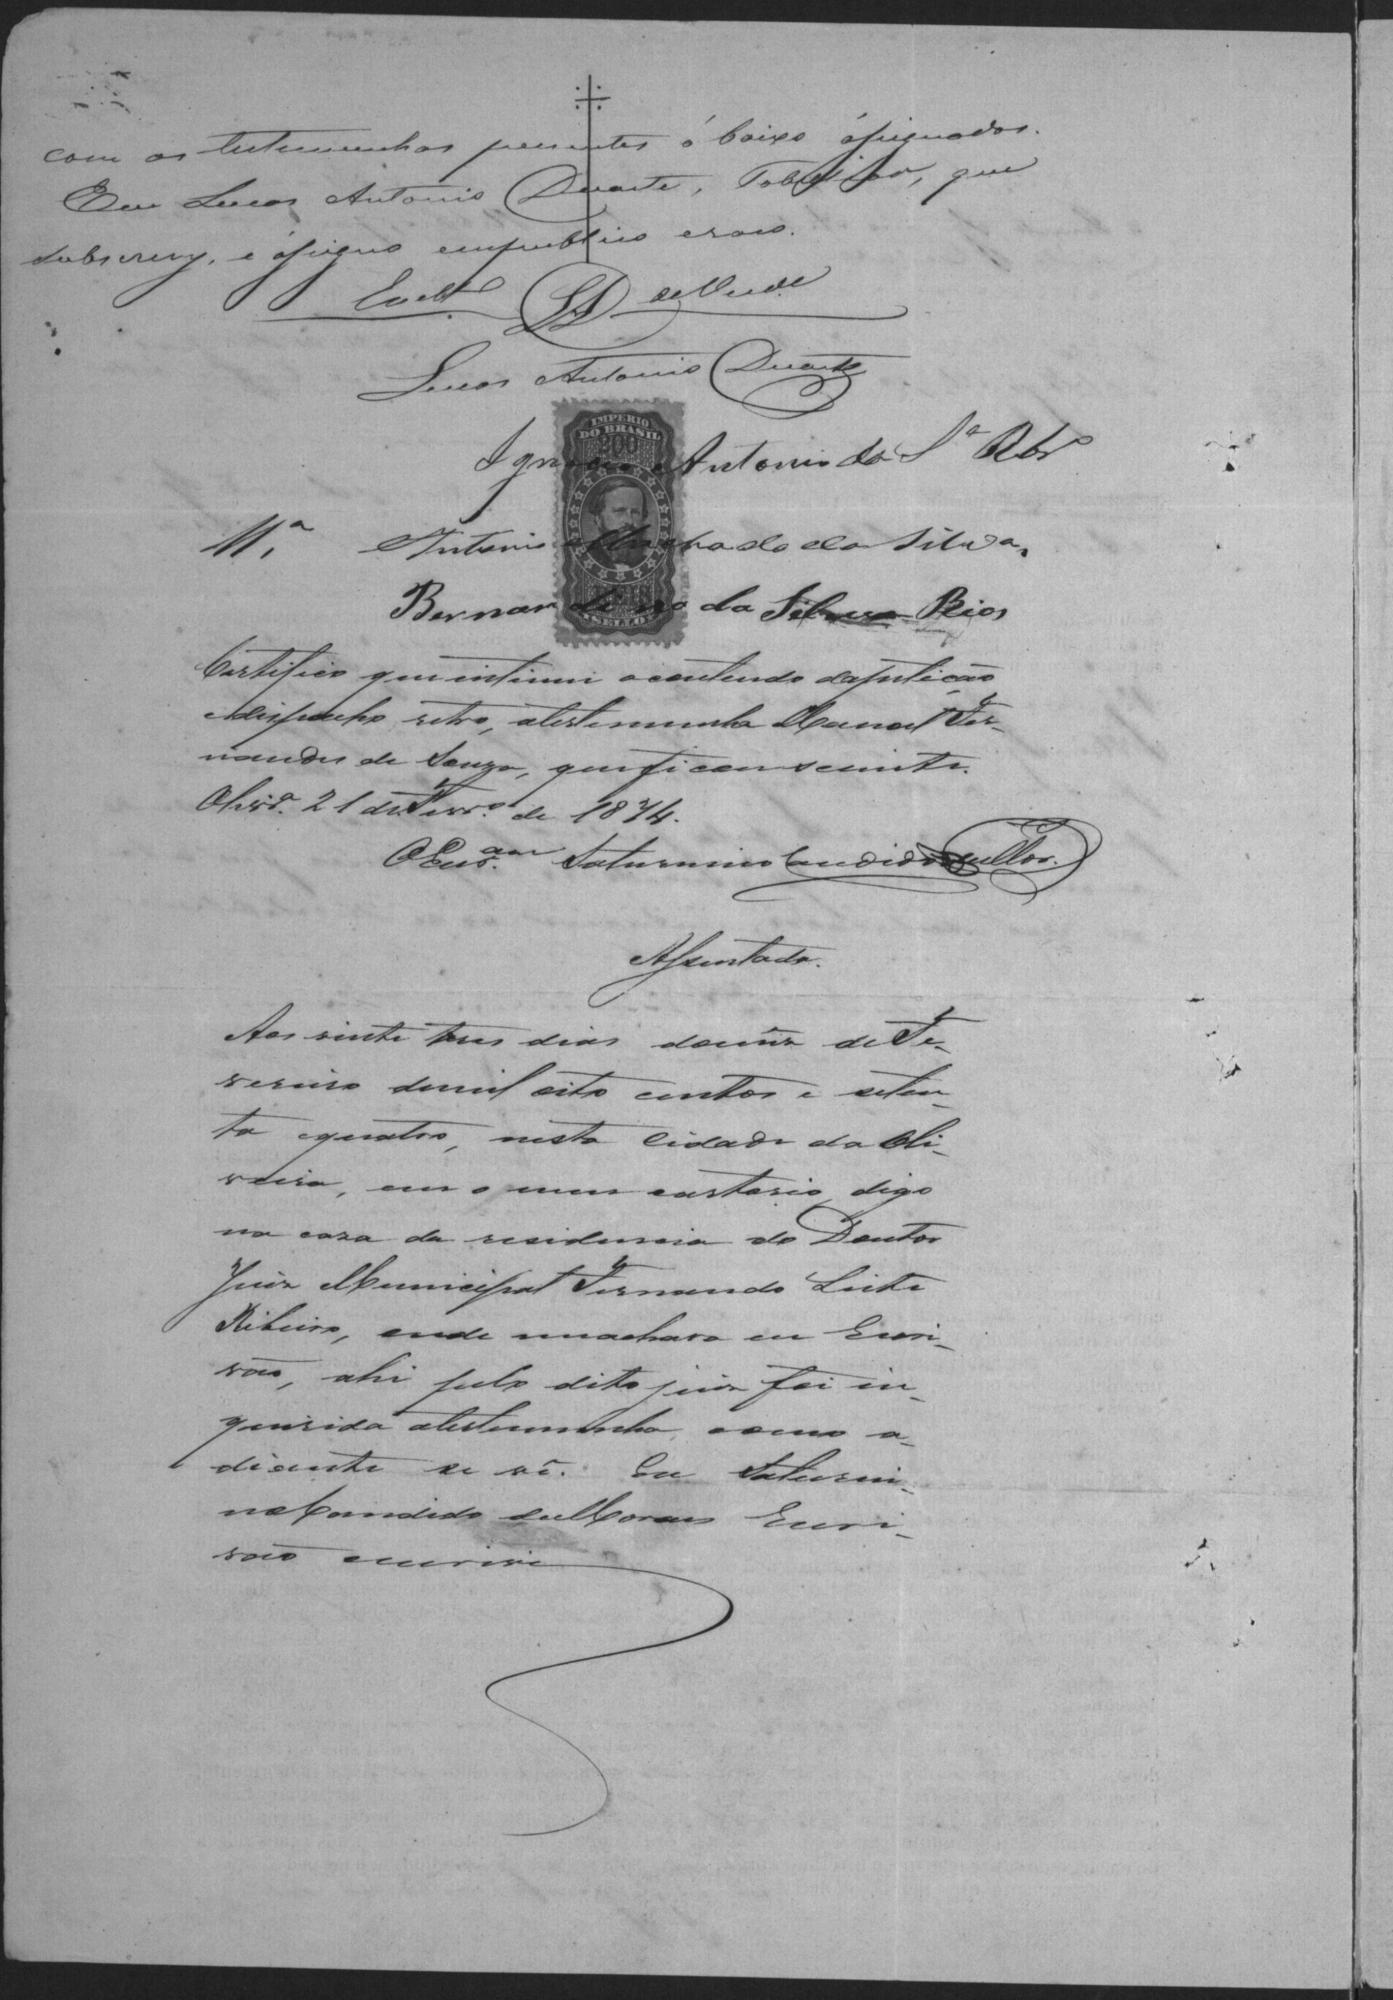 com as testemunhas presentes á baixo ássignados.
Eu Lucas Antonio Duarte, Tabelião, que
subscrevy, e ássigno em publico e raso.
Em test.º LD de Verd.e
Lucas Antonio Duarte
IMPERIO
DO BRASIL
200
Ignacio Antonio da S.ª
M.ª Antonio Machado da Silva,
Bernardino da Silva Rios
SELLO
Certifico que intimei o conteudo da petição
e despacho retro, a testemunha Manoel Fer-
nandes de Souza, que ficou sciente.
Olivr.ª 21 de Fevr.º de 1874.
O Escr.am Saturnino Candido
Assentada.
Aos vinte tres dias do mez de Fe-
vereiro de mil oito centos e seten-
ta e quatro, nesta Cidade da Oli-
veira, em o meu cartorio, digo
na caza da residencia do Doutor
Juiz Municipal Fernando Leite
Ribeiro, onde me achava eu Escri-
vão, ahi pelo dito juiz foi in-
querida a testemunha, como a-
diante se vê. Eu Saturni-
no Candido de Moraes Escri-
vão escrivi